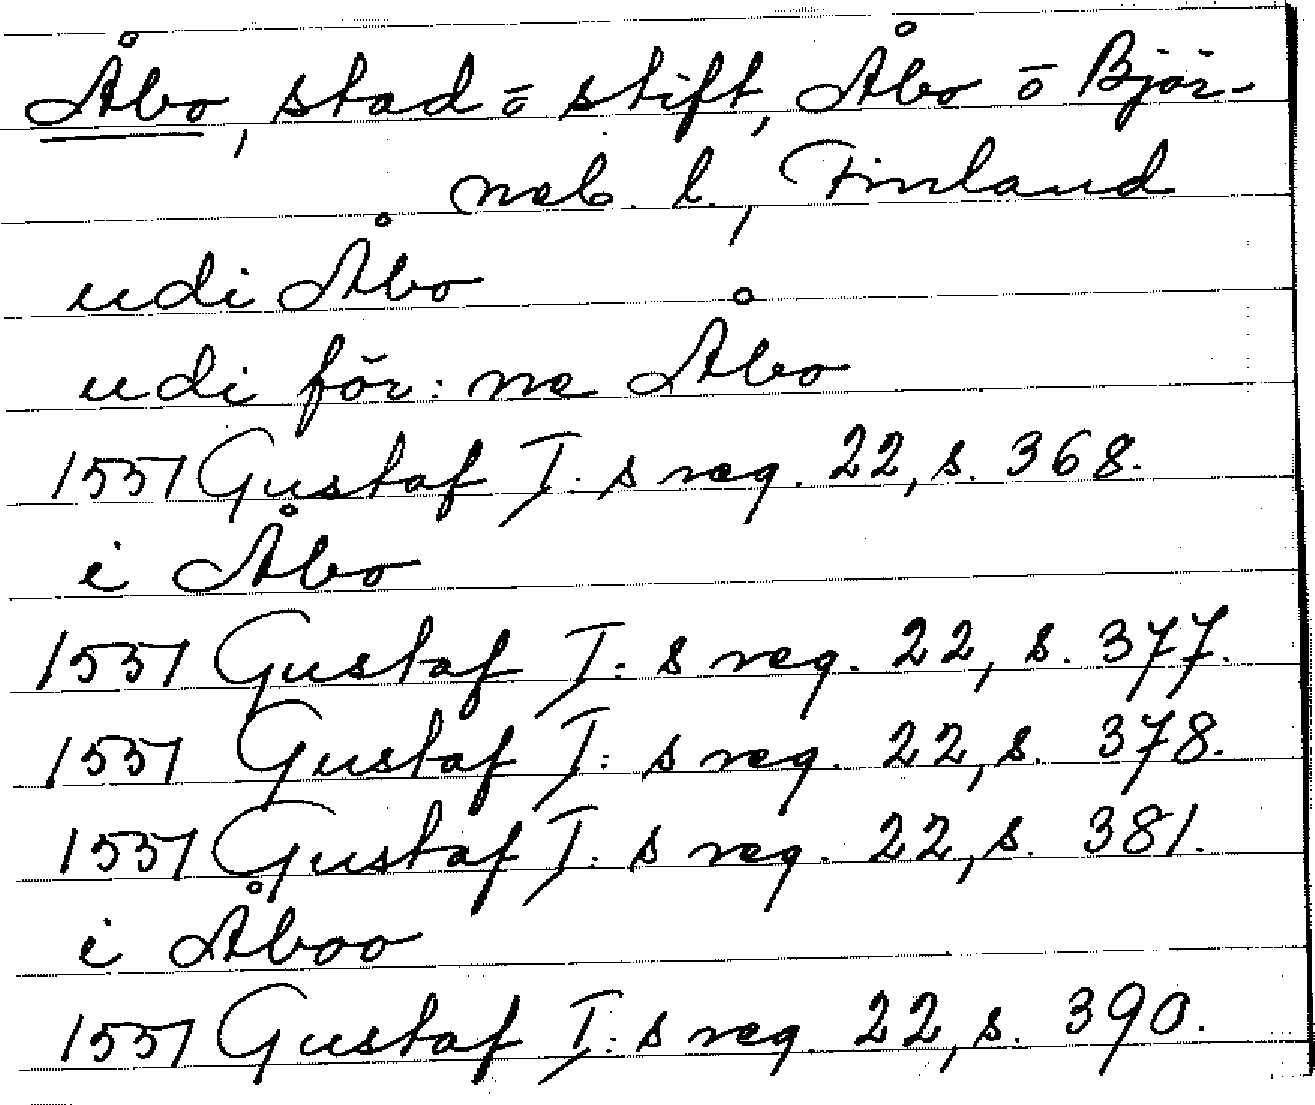 Åbo, stad ō stift, Åbo ō Björ-
neb. l., Finland
udi Åbo
udi för:ne Åbo
1551 Gustaf I:s reg. 22, s. 368.
i Åbo
1551 Gustaf I:s reg. 22, s. 377.
1551 Gustaf I:s reg. 22, s. 378.
1551 Gustaf I:s reg. 22, s. 381.
i Åboo
1551 Gustaf I:s reg. 22, s. 390.